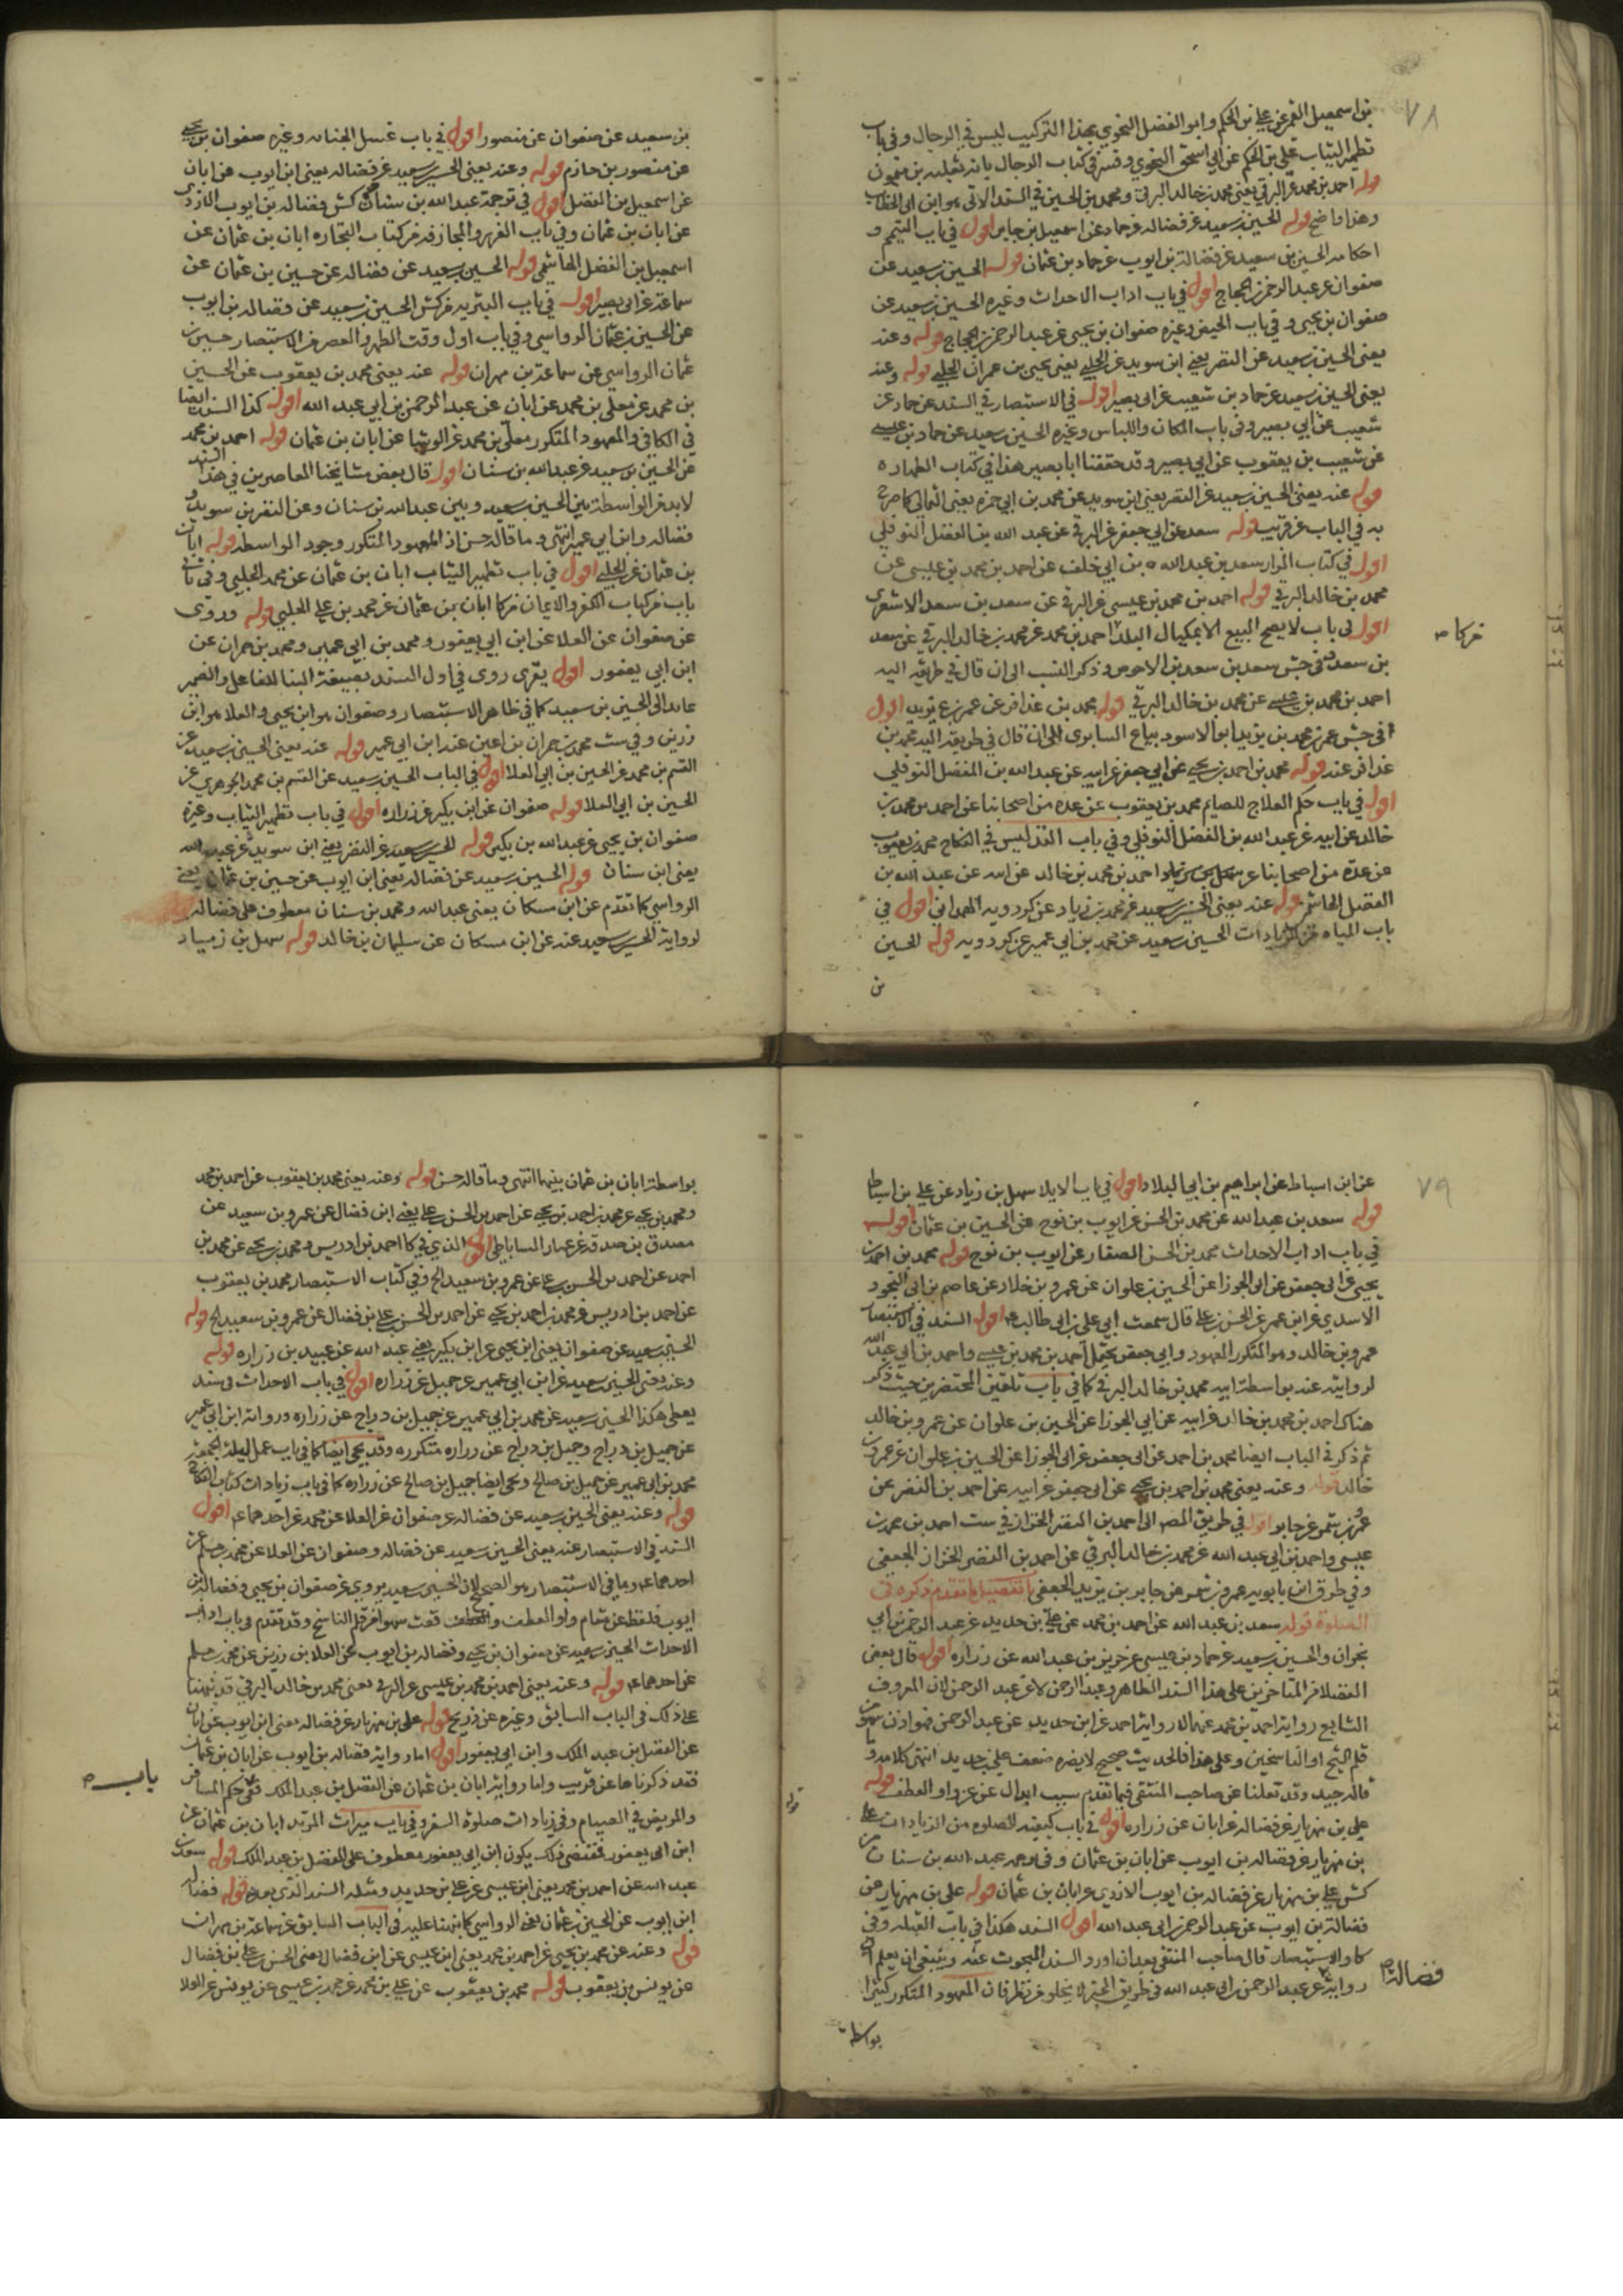 ٧٨
بن اسمعيل القمي عن علي بن الحكم وابو الفضل النحوي بهذا التركيب ليس في الرجال وفي باب
تطهير الثياب علي بن الحكم عن ابي اسحق النحوي وفسر في كتاب الرجال بانه ثعلبه بن ميمون
قوله احمد بن محمد عن البرقي يعنى محمد بن خالد البرقي ومحمد بن الحسين في السند الاتي هو ابن ابى الخطاب
وهذا واضح قوله الحسين بن سعيد عن فضاله عن حماد عن اسمعيل بن جابر اقول في باب التيمم و
احكامه الحسين بن سعيد عن فضالة بن ايوب عن حماد بن عثمان قوله الحسين بن سعيد عن
صفوان عن عبد الرحمن بن الحجاج اقول في باب اداب الاحداث وغيره الحسين بن سعيد عن
صفوان بن يحيى وفي باب الحيض وغيره صفوان بن يحيى عن عبد الرحمن بن الحجاج قوله وعنه
يعنى الحسين بن سعيد عن النضر يعني ابن سويد عن الحلبي يعنى يحيى بن عمران الحلبي قوله وعنه
يعنى الحسين بن سعيد عن حماد بن شعيب عن ابى بصير اقول في الاستبصار في السند عن حماد عن
شعيب عن أبي بصير وفي باب المكان واللباس وغيره الحسين بن سعيد عن حماد بن عيسى
عن شعيب بن يعقوب عن ابي بصير وقد حققنا ابا بصير هذا في كتاب الطهاره
قوله عنه يعنى الحسين بن سعيد عن النضر يعنى ابن سويد عن محمد بن ابي حمزه يعنى الثمالي كما صرح
به في الباب عن قريب قوله سعد عن ابي جعفر عن البرقي عن عبد الله بن الفضل النوفلي
اقول في كتاب المزار سعد بن عبد الله بن ابي خلف عن احمد بن محمد بن عيسى عن
محمد بن خالد البرقي قوله احمد بن محمد بن عيسى عن البرقي عن سعد بن سعد الاشعرى
اقول في باب لا يصح البيع الا بمكيال البلد احمد بن محمد عن محمد بن خالد البرقي عن سعد
من كا ص
بن سعد وفى جش سعد بن سعد بن الاحوص وذكر النسب الى ان قال في طريقه اليه
احمد بن محمد بن عيسى عن محمد بن خالد البرقي قوله محمد بن عذافر عن عمر بن يزيد اقول
في جش عمر بن محمد بن يزيد ابو الاسود بياع السابرى الى ان قال في طريقه اليه محمد بن
عذافر عنه قوله محمد بن احمد بن يحيى عن ابي جعفر عن ابيه عن عبد الله بن المفضل النوفلي
اقول في باب حكم العلاج للصايم محمد بن يعقوب عن عده من اصحابنا عن احمد بن محمد بن
خالد عن ابيه عن عبد الله بن الفضل النوفلي وفي باب التدليس في النكاح محمد بن يعقوب
عن عدة من اصحابنا عن سهل بن زياد احمد بن محمد بن خالد عن ابيه عن عبد الله بن
الفضل الهاشمي قوله عنه يعنى الحسين بن سعيد عن محمد بن زياد عن كردويه الهمداني اقول في
باب المياه من الزيادات الحسين بن سعيد عن محمد بن ابي عمير عن كردويه قوله الحسين
بن
بن سعيد عن صفوان عن منصور اقول في باب غسل الجنابه وغيره صفوان بن يحيى
عن منصور بن حازم قوله وعنه يعنى الحسين بن سعيد عن فضاله يعنى ابن ايوب عن ابان
عن اسمعيل بن الفضل اقول في ترجمة عبد الله بن سنان كش فضاله بن ايوب الازدى
عن ابان بن عثمان وفي باب الغرر والمجازفه من كتاب التجاره ابان بن عثمان عن
اسمعيل بن الفضل الهاشمي قوله الحسين بن سعيد عن فضاله عن حسين بن عثمان عن
سماعه عن ابي بصير اقول في باب البئر يه من كش الحسين بن سعيد عن فضاله بن ايوب
عن الحسين بن عثمان الرواسي وفي باب اول وقت الظهر والعصر من الاستبصار حسين بن
عثمان الرواسي عن سماعة بن مهران قوله عنه يعنى محمد بن يعقوب عن الحسين
بن محمد عن معلى بن محمد عن ابان عن عبد الرحمن بن ابي عبد الله اقول كذا السند ايضا
في الكافي والمعهود المتكرر معلى بن محمد عن الوشا عن ابان بن عثمان قوله احمد بن محمد
عن الحسين بن سعيد عن عبد الله بن سنان اقول قال بعض مشايخنا المعاصرين في هذا السند
لابد من الواسطة بين الحسين بن سعيد وبين عبد الله بن سنان وعن النضر بن سويد و
فضاله وابن ابي عمير انتهى وما قاله حسن اذ المعهود المتكرر وجود الواسطه قوله ابان
بن عثمان عن الحلبي اقول في باب تطهير الثياب ابان بن عثمان عن محمد الحلبي وفي ثاني
باب من كتاب الكفر والايمان من كا ابان بن عثمان عن محمد بن علي الحلبي قوله وروى
عن صفوان عن العلا عن ابن ابي يعفور ومحمد بن ابي عمير ومحمد بن حمران عن
ابن ابي يعفور اقول يقرى روى في اول السند بصيغة البنا للفاعل والضمير
عايد الى الحسين بن سعيد كما في ظاهر الاستبصار وصفوان هو ابن يحيى والعلا هو ابن
رزين وفي ست محمد بن حمران بن اعين عنه ابن ابي عمير قوله عنه يعنى الحسين بن سعيد عن
القسم بن محمد عن الحسين بن ابي العلا اقول في الباب الحسين بن سعيد عن القسم بن محمد الجوهري عن
الحسين بن ابي العلا قوله صفوان عن ابن بكير عن زراره اقول في باب تطهير الثياب وغيره
صفوان بن يحيى عن عبد الله بن بكير قوله الحسين بن سعيد عن النضر يعني ابن سويد عن عبد الله
يعنى ابن سنان قوله الحسين بن سعيد عن فضاله يعنى ابن ايوب عن حسين بن عثمان يعني
الرواسي كما تقدم عن ابن مسكان يعنى عبد الله ومحمد بن سنان معطوف على فضاله
لرواية الحسين بن سعيد عنه عن ابن مسكان عن سليمان بن خالد قوله سهل بن زياد
٧٩
عن ابن اسباط عن ابراهيم بن ابي البلاد اقول في باب الايلا سهل بن زياد عن علي بن اسباط
قوله سعد بن عبد الله عن محمد بن الحسن عن ايوب بن نوح عن الحسين بن عثمان اقول
في باب اداب الاحداث محمد بن الحسن الصفار عن ايوب بن نوح قوله محمد بن احمد بن
يحيى عن ابى جعفر عن ابى الجوزا عن الحسين بن علوان عن عمرو بن خالد عن عاصم بن ابى النجود
الاسدي عن ابن عمر عن الحسن بن علي قال سمعت ابي علي بن ابي طالب عه اقول السند في الاستبصار
عمرو بن خالد وهو المتكرر المعهود وابي جعفر يحتمل احمد بن محمد بن عيسى واحمد بن ابي عبد الله
لروايته عنه بواسطة ابيه محمد بن خالد البرقي كما في باب تلقين المحتضرين حيث ذكر
هناك احمد بن محمد بن خالد عن ابيه عن ابي الجوزا عن الحسين بن علوان عن عمرو بن خالد
ثم ذكر في الباب ايضا محمد بن احمد عن ابى جعفر عن ابى الجوزا عن الحسين بن علوان عن عمرو بن
خالد قوله وعنه يعنى محمد بن احمد بن يحيى عن ابى جعفر عن ابيه عن احمد بن النضر عن
عمرو بن شمر عن جابر اقول في طريق المصه الى احمد بن النضر الخزاز في ست احمد بن محمد بن
عيسى واحمد بن ابي عبد الله عن محمد بن خالد البرقي عن احمد بن النضر الخزاز الجعفي
وفي طرق ابن بابويه عمرو بن شمر عن جابر بن يزيد الجعفي
الصلوة قوله سعد بن عبد الله عن احمد بن محمد عن علي بن حديد عن عبد الرحمن بن ابي
نجران والحسين بن سعيد عن حماد بن عيسى عن حريز بن عبد الله عن زراره اقول قال بعض
الفضلا من المتاخرين على هذا السند الظاهر وعبد الرحمن لا عن عبد الرحمن لان المعروف
الشايع رواية احمد بن محمد عنه لا رواية احمد عن ابن حديد عن عبد الرحمن فهو اذن سهو من
قلم الشيخ او الناسخين وعلى هذا فالحديث صحيح لا يضره ضعف علي بن حديد انتهى كلامه و
قاله جيد وقد نقلنا عن صاحب المنتقى فيما تقدم سبب ابدال عن عن واو العطف قوله
علي بن مهزيار عن فضاله عن ابان عن زراره اقول في باب كيفيه الصلوه من الزيادات علي
بن مهزيار عن فضاله بن ايوب عن ابان بن عثمان وفي ترجمه عبد الله بن سنان من
كش علي بن مهزيار عن فضاله بن ايوب الازدي عن ابان بن عثمان قوله علي بن مهزيار عن
فضالة بن ايوب عن عبد الرحمن بن ابى عبد الله اقول السند هكذا في باب القبله وفي
كا والاستبصار قال صاحب المنتقى بعد ان اورد السند المبحوث عنه وينبغى ان يعلم ان
رواية عن عبد الرحمن بن ابى عبد الله في طريق الخبر لا يخلو من نظر فان المعهود المتكرر كثيرا
فضالة ص
بواسطة
بواسطة ابان بن عثمان بينهما انتهى وما قاله حسن قوله وعنه يعنى محمد بن يعقوب عن احمد بن محمد
ومحمد بن يحيى عن محمد بن احمد بن يحيى عن احمد بن الحسن بن علي يعني ابن فضال عن عمرو بن سعيد عن
مصدق بن صدقه عن عمار الساباطي اقول الذي في كا احمد بن ادريس ومحمد بن يحيى عن محمد بن
احمد عن احمد بن الحسن بن علي عن عمرو بن سعيد الخ وفي كتاب الاستبصار محمد بن يعقوب
عن احمد بن ادريس عن محمد بن احمد بن يحيى عن احمد بن الحسن بن علي بن فضال عن عمرو بن سعيد الخ قوله
الحسين بن سعيد عن صفوان يعنى ابن يحيى عن ابن بكير يعني عبد الله عن عبيد بن زراره قوله
وعنه يعنى الحسين بن سعيد عن ابن ابى عمير عن جميل عن زراره اقول في باب الاحداث في سند
يعطى هكذا الحسين بن سعيد عن محمد بن ابي عمير عن جميل بن دراج عن زراره ورواية ابن ابي عمير
عن جميل بن دراج وجميل بن دراج عن زراره متكرره وقد يجئ ايضا كما في باب عمل ليلة الجمعه
محمد بن ابي عمير عن جميل بن صالح ويجئ ايضا جميل بن صالح عن زراره كما في باب زيادات كتاب النكاح
قوله وعنه يعنى الحسين بن سعيد عن فضاله عن صفوان عن العلا عن محمد عن احدهما عه اقول
السند في الاستبصار عنه يعنى الحسين بن سعيد عن فضاله وصفوان عن العلا عن محمد بن مسلم عن
احدهما عه وما في الاستبصار هو الصحيح لان الحسين بن سعيد يروي عن صفوان بن يحيى وفضالة بن
ايوب فلفظ عن مقام واو العطف وقعت سهوا من قلم الناسخ وقد تقدم في باب اداب
الاحداث الحسين بن سعيد عن صفوان بن يحيى وفضاله بن ايوب عن العلا بن رزين عن محمد بن مسلم
عن احدهما عه قوله وعنه يعنى احمد بن محمد بن عيسى عن البرقي يعنى محمد بن خالد البرقي قد نبهنا
على ذلك في الباب السابق وغيره عن ذريح قوله علي بن مهزيار عن فضاله يعنى ابن ايوب عن ابان
عن الفضل بن عبد الملك وابن ابي يعفور اقول اما رواية فضاله بن ايوب عن ابان بن عثمان
فقد ذكرناها عن قريب واما رواية ابان بن عثمان عن الفضل بن عبد الملك ففي حكم المسافر
باب ص
والمريض في الصيام وفي زيادات صلوة السفر وفي باب ميراث المرتد ابان بن عثمان عن
ابن ابى يعفور فمقتضى ذلك يكون ابن ابى يعفور معطوف على الفضل بن عبد الملك قوله سعد بن
عبد الله عن احمد بن محمد يعنى ابن عيسى عن علي بن حديد ومثله السند الذي بعده قوله فضاله
ابن ايوب عن الحسين بن عثمان يعنى الرواسي كما نبهنا عليه في الباب السابق عن سماعة بن مهران
قوله وعنه عن محمد بن يحيى عن احمد بن محمد يعنى ابن عيسى عن ابن فضال يعنى الحسن بن علي بن فضال
عن يونس بن يعقوب قوله محمد بن يعقوب عن علي بن محمد عن محمد بن عيسى عن يونس عن العلا